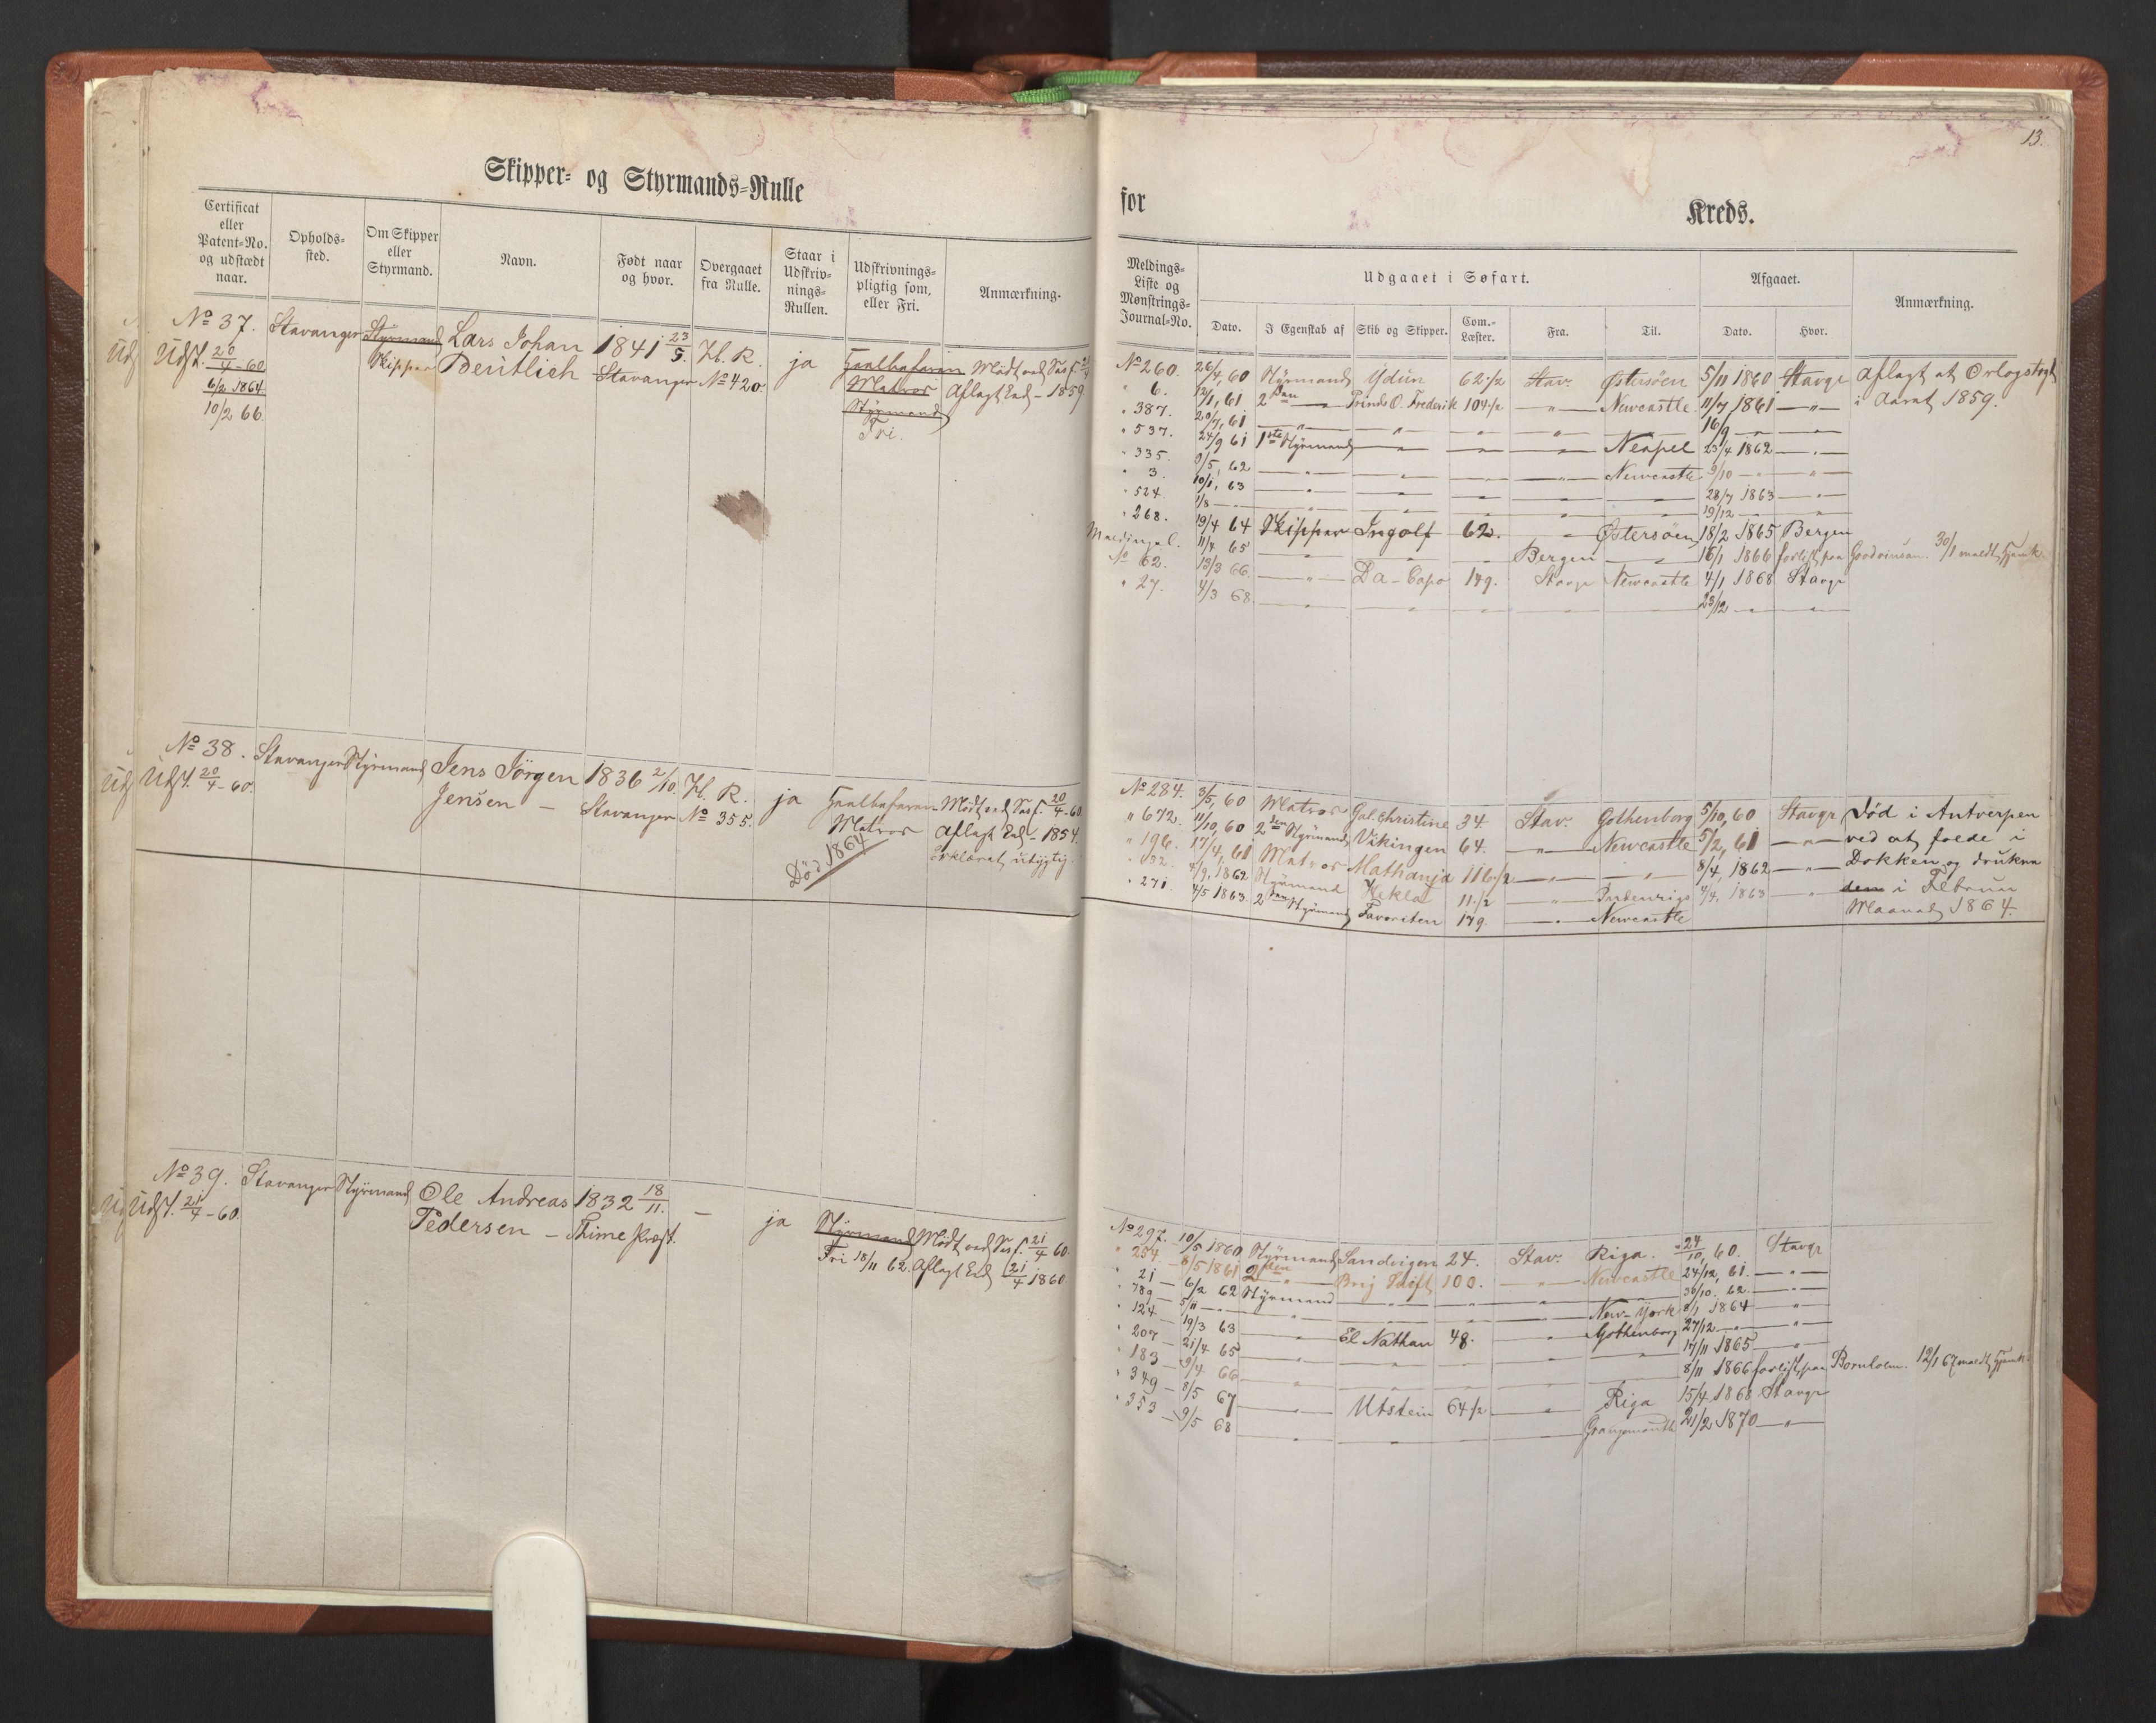 Skipper- og Styrmands-Rulle
Certificat eller Patent-No. og udstædt naar.
Opholds-sted.
Om Skipper eller Styrmand.
Navn.
Født naar og hvor.
Overgaaet fra Rulle.
Staar i Udskriv-nings-Rullen.
Udskrivnings-pligtig som, eller Fri.
Anmærkning.
No 37. Stavanger Styrmand Lars Johan 1841 23/5. H. R. ja
Udst. 20/4 - 60 Skipper Bentlich Stavanger No 420. Matros Aflagt Eed - 1859
6/2 1864. Styrmand
10/2 66. Fri.
No 38. Stavanger Styrmand Jens Jörgen 1836 2/10. H. R. ja
Udst. 20/4 - 60. Jensen - Stavanger No 355. Matros Aflagt Eed - 1854.
Død 1864
No 39. Stavanger Styrmand Ole Andreas 1832 18/11. - ja Styrmand Mødt ved 21/4 60.
Udst. 21/4 - 60. Pedersen - Thime Præst. Fri 18/11 62. Aflagt Eed 21/4 1860
13.
for Kreds.
Meldings-Liste og Mønstrings-Journal-No.
Udgaaet i Søfart.
Dato.
I Egenskab af
Skib og Skipper.
Com.-Læster.
Fra.
Til.
Afgaaet.
Dato.
Hvor.
Anmærkning.
No 260. 26/4, 60 Styrmand Ydun 62 1/2 Stav. Østersøen 5/11 1860 Stavgr Aflagt et Orlogstogt
" 6. 12/1, 61 2den — Prinds O. Frederik 104 1/2 —"— Newcastle 11/7 1861 —"— i Aaret 1859.
" 387. 20/7, 61 —"— " — " — 16/9 — —
" 537. 24/9 61 1ste Styrmand — — — Neapel 23/4 1862 —"—
" 335. 9/5, 62 —"— " — —"— Newcastle 9/10 — "
" 3. 10/1, 63 —"— " — " — 28/7 1863 —"—
" 524. 1/8 — —"— " — " — 19/12 — "
" 268. 19/4 64 Skipper Ingolf 62. " Østersøen 18/2 1865 Bergen
Meldingsl. 11/4 65 —"— " — Bergen — 16/1 1866 forlist paa
No 62. 13/3 66. —"— Da-Capo 179. Stavgr Newcastle 4/1 1868 Stavgr
" 27. 4/3 68. —"— " " " — 23/12 — "
No 284. 3/5, 60 Matros Gal. Christine 34. Stav. Gothenborg 5/10, 60 Stavgr Død i Antverpen
" 672. 11/10, 60 2den Styrmand Vikingen 64. —"— Newcastle 5/2, 61 —"— ved at falde i
" 196. 17/4, 61 Matros Mathanja 116 1/2 —"— —"— 8/4, 1862 —"— Dokken og drukne
" 32. 4/9, 1862 Styrmand Hekla 11 1/2 " 4/4, 1863 — " i Februar
" 271. 4/5 1863. 2den Styrmand Favoriten 179. —"— Newcastle Maaned 1864.
No 297. 10/5 1860 Styrmand Sandvigen 24. Stav. Riga. 24/10, 60. Stavgr
" 254 — 8/5 1861 2den " — Brig 100. —"— Newcastle 24/12, 61. —"—
" 21 — 6/2 62 Styrmand — " " — 30/10. 62. —"—
" 789 — 5/11 — " —"— " " " New-York 8/1 1864 — "
" 124 — 19/3 63 —"— El Nathan 48. —"— Gothenborg 27/12 — " — "
" 207 — 21/4 65 —"— " — " " 17/11 1865 — "
" 183 — 9/4 66 —"— " " — — 8/11 1866 forlist paa Bornholm. 12/1 67 meldt
" 349 — 8/5 67 —"— Utstein 64 1/2 —"— Riga 15/4 1868 Stavgr
" 353 — 9/5 68 —"— " " — Grangemouth 21/2 1870 —"—